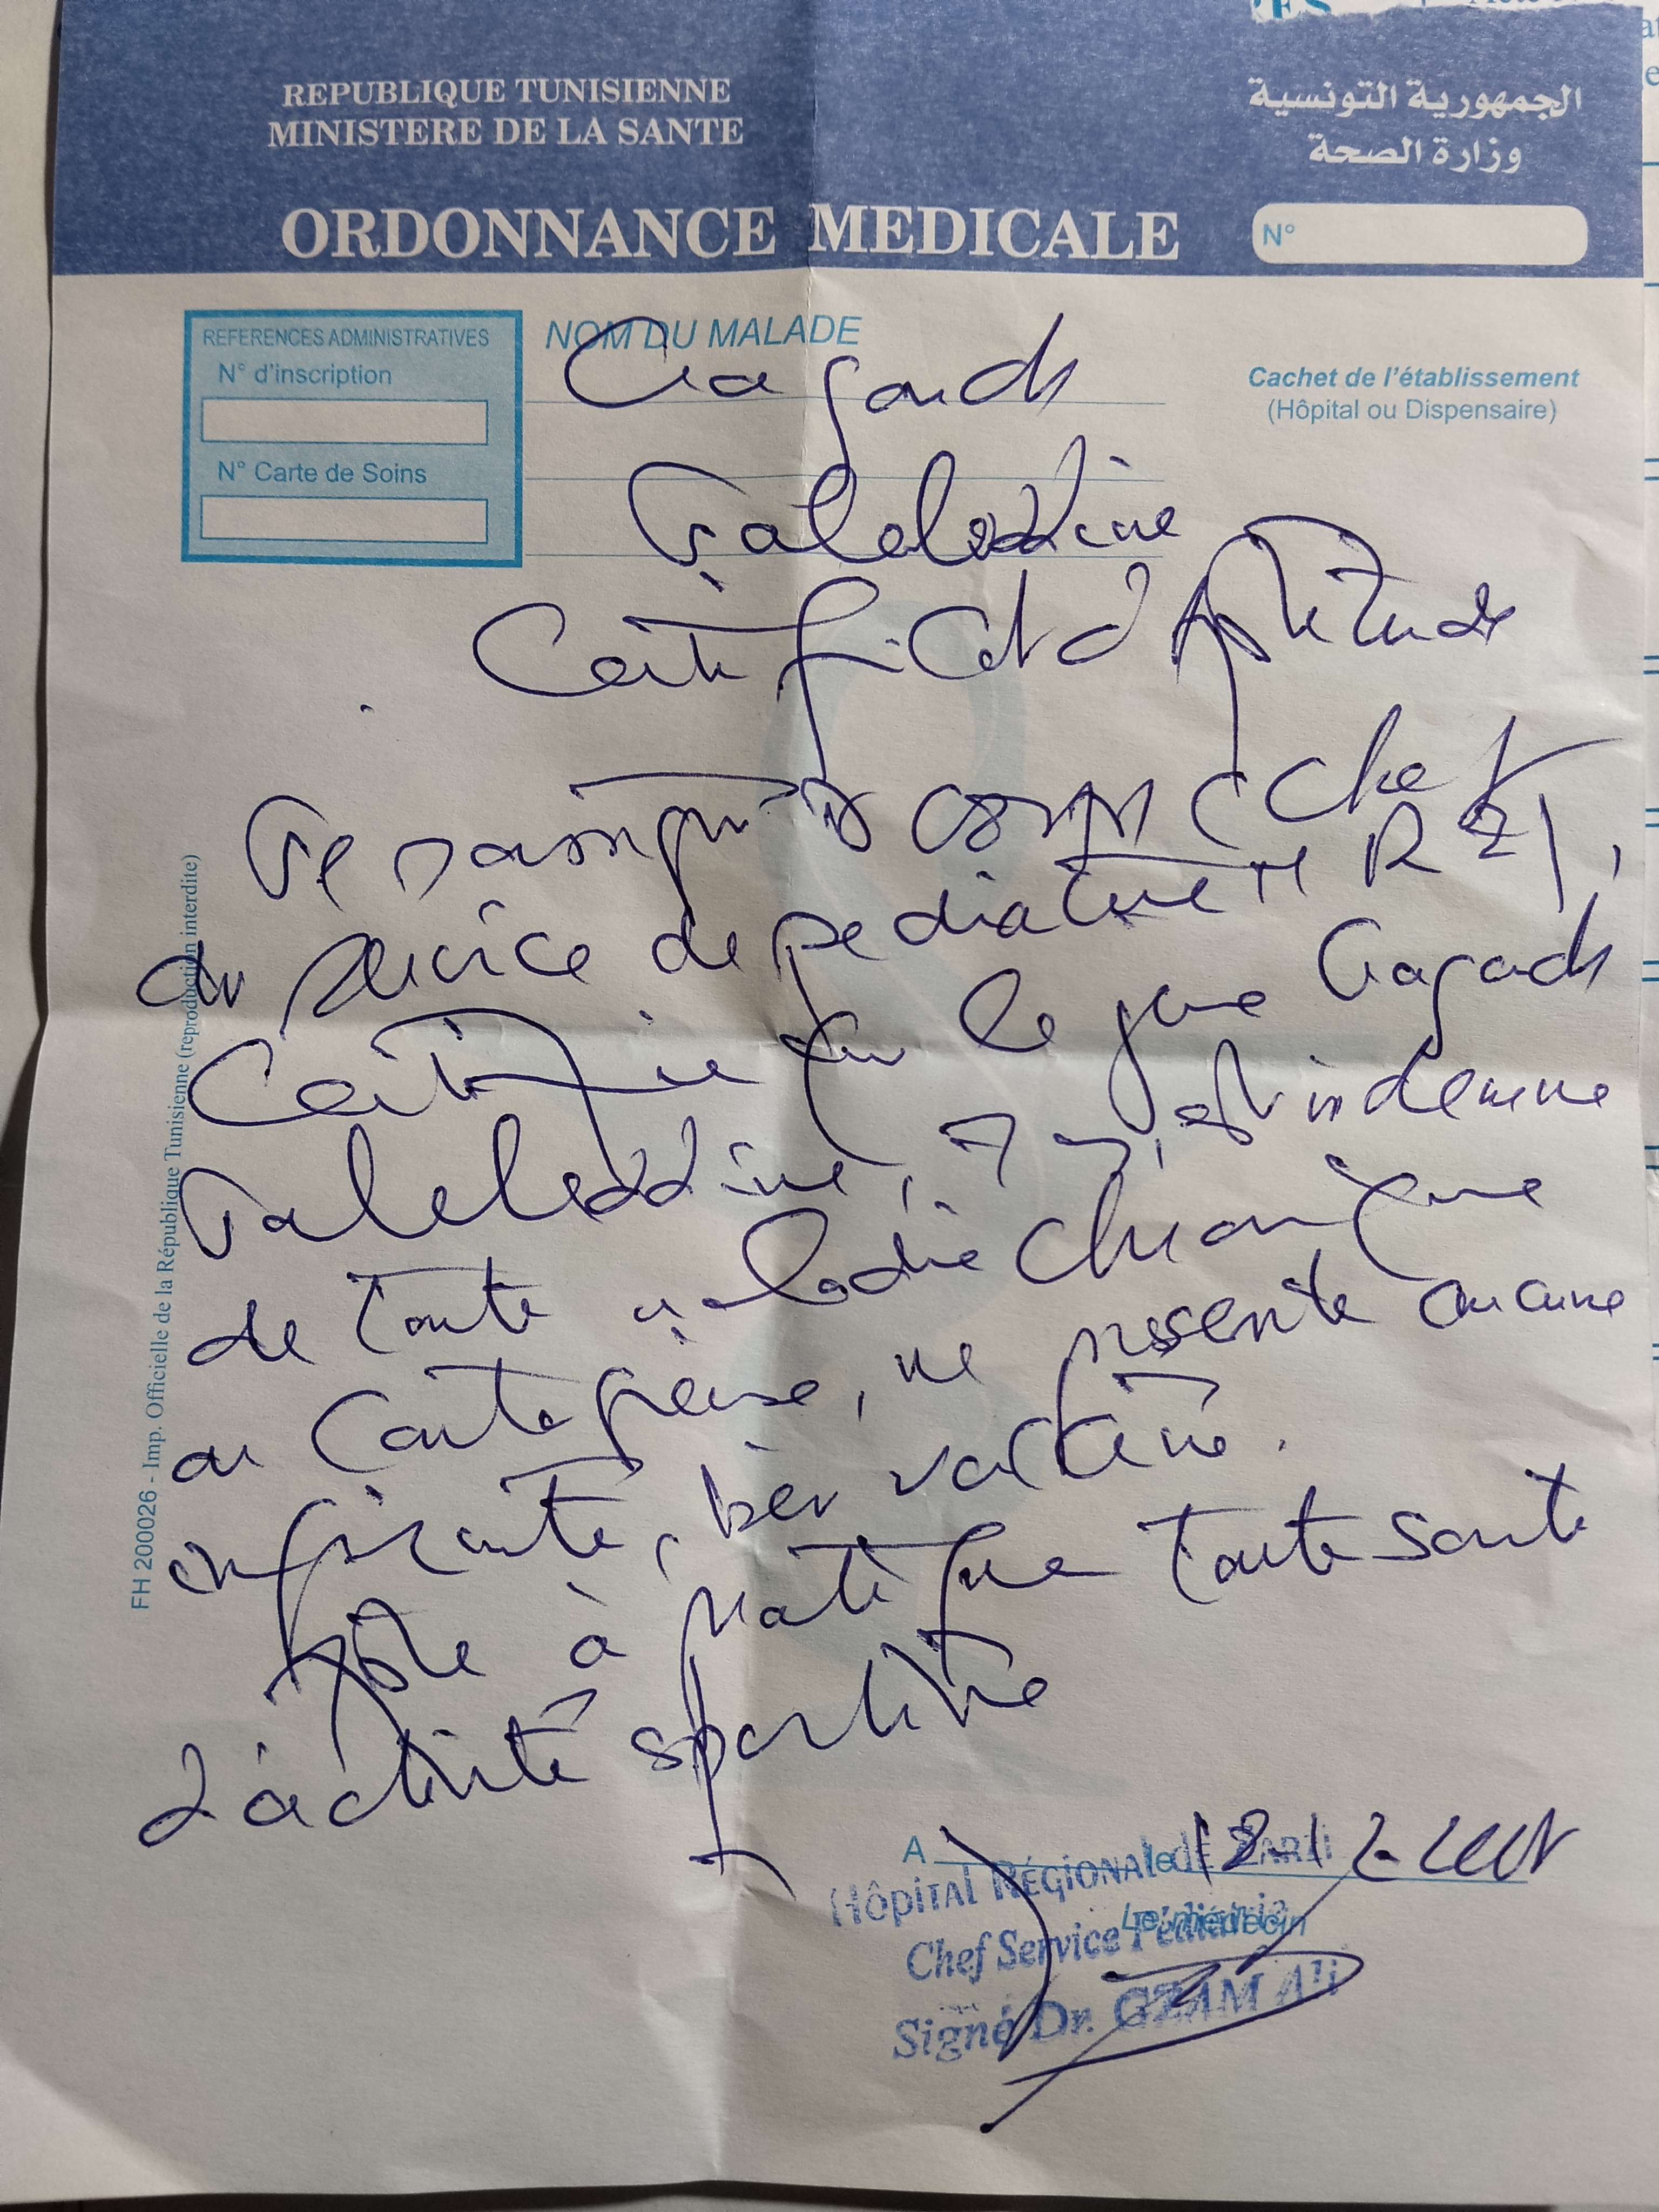 REPUBLIQUE TUNISIENNE
MINISTERE DE LA SANTE
الجمهورية التونسية
وزارة الصحة
ORDONNANCE MEDICALE
N°
REFERENCES ADMINISTRATIVES
N° d'inscription
N° Carte de Soins
NOM DU MALADE
Cachet de l'établissement
(Hôpital ou Dispensaire)
Certificat d'Aptitude
Je soussigné Dr
du service de pediatrie H R Z),
Certifie que le jeune
est indemne
de toute maladie chronique
ou contagieuse, ne présente aucune
infirmité, bien vacciné.
Apte à pratique toute sorte
d'activité sportive
A
le
Le médecin
Hôpital Régional de Zarzi
Chef Service Pédiatrie
Signé Dr. GZAM Ali
FH 200026 - Imp. Officielle de la République Tunisienne (reproduction interdite)